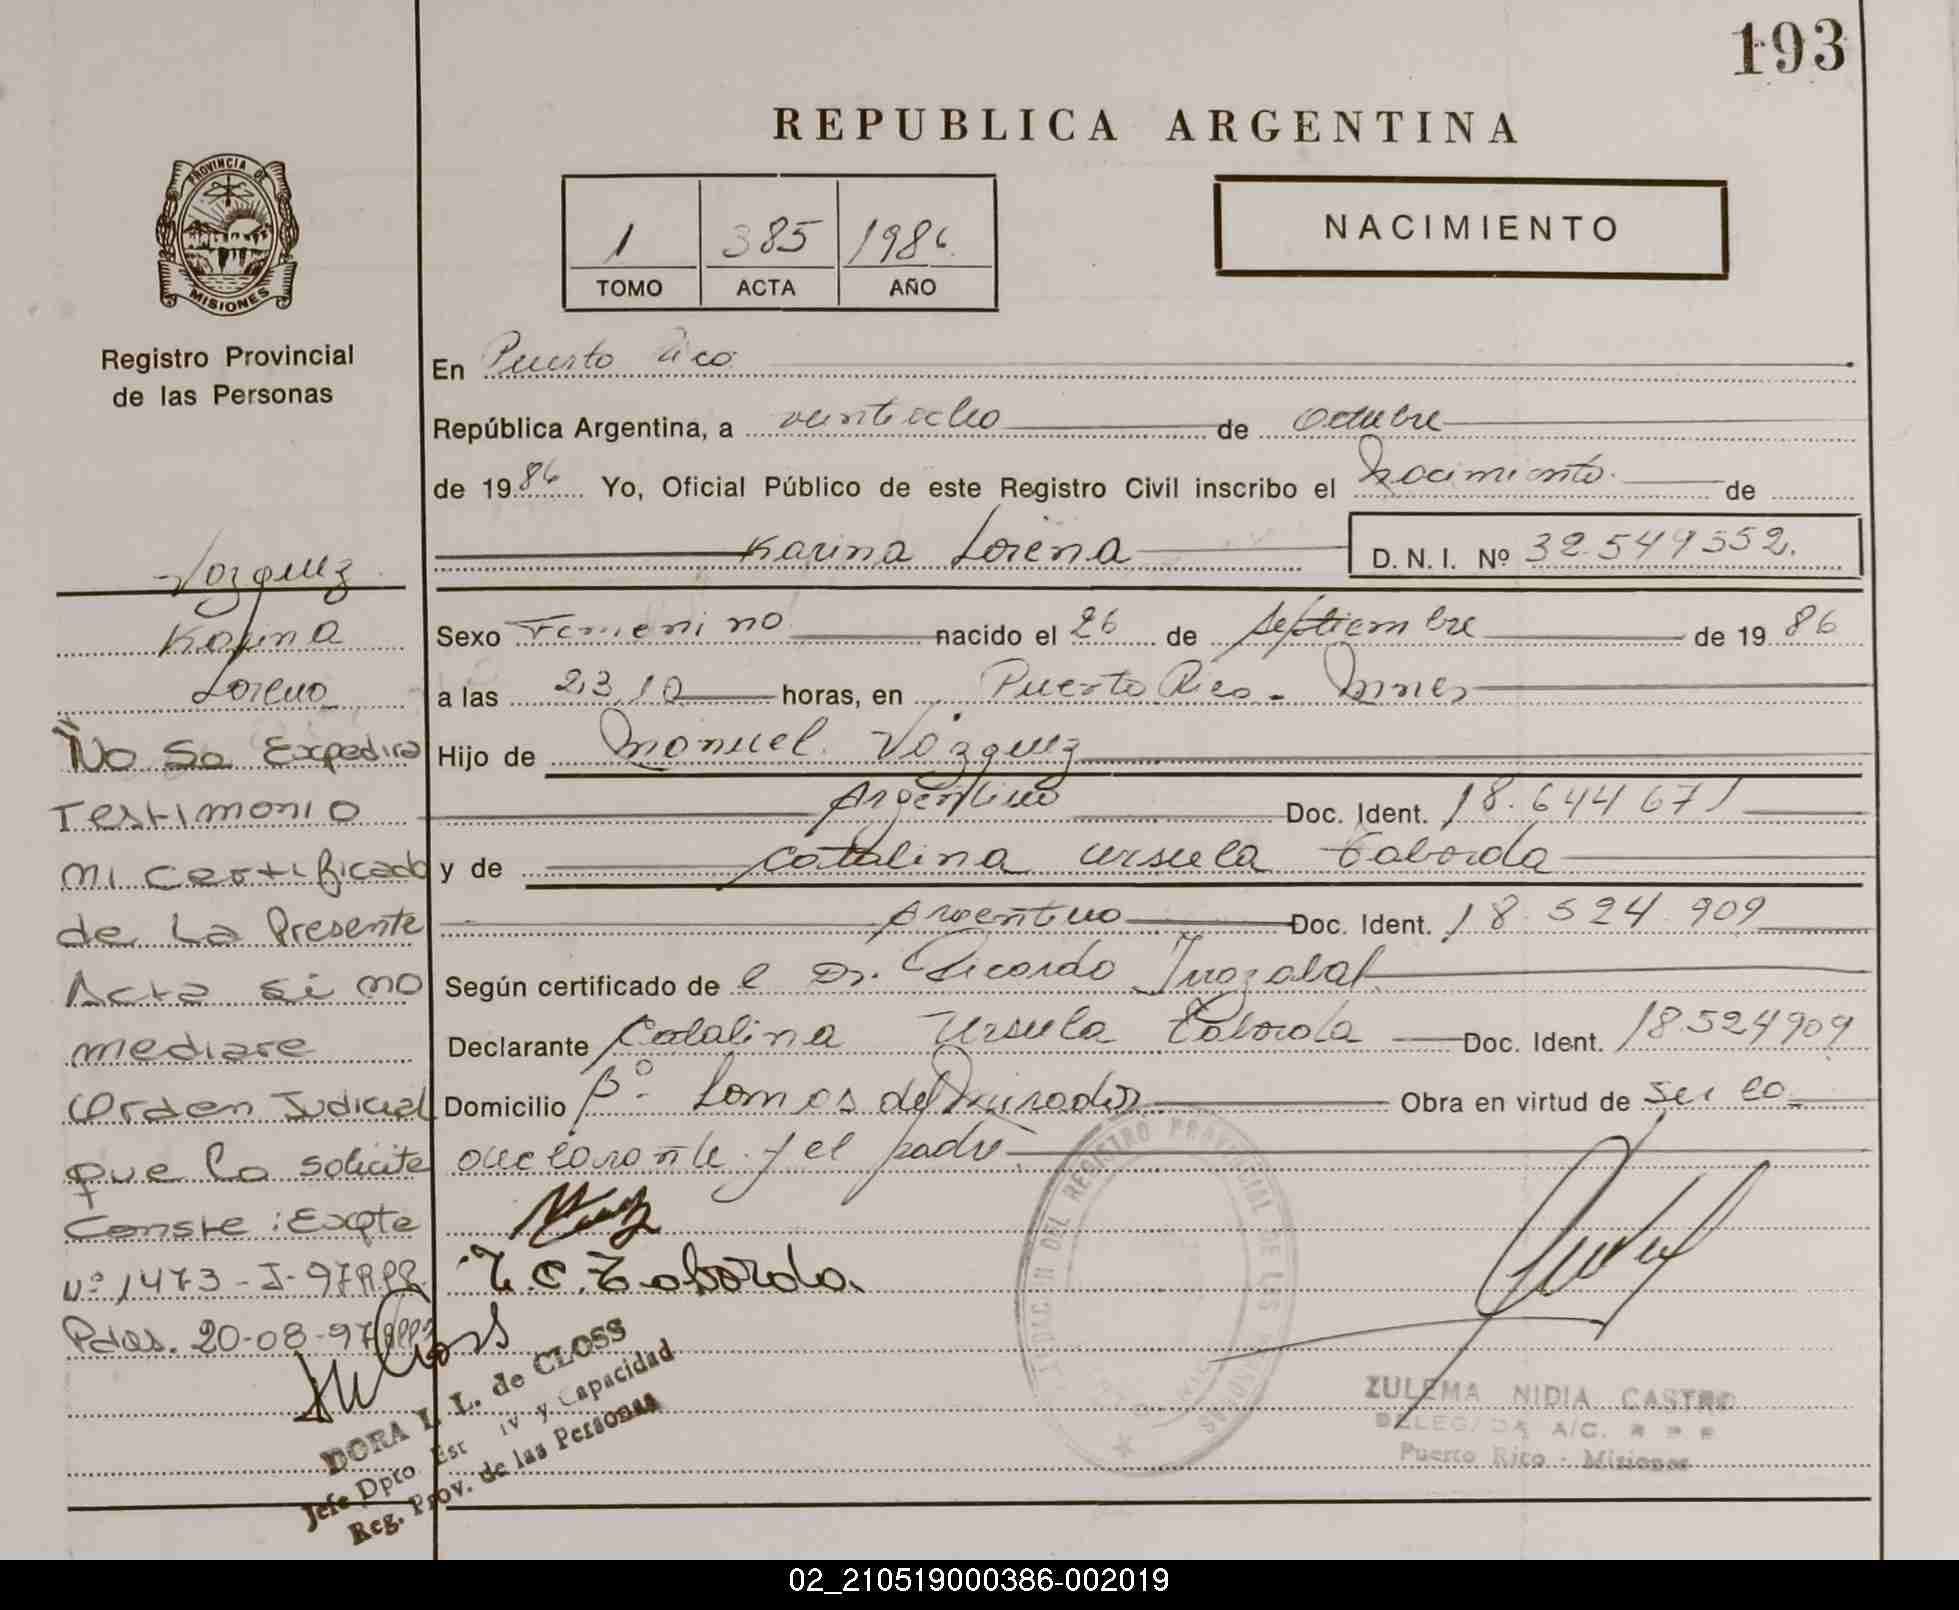 193
REPUBLICA ARGENTINA
PROVINCIA DE
MISIONES
1 385 1986
TOMO ACTA AÑO
NACIMIENTO
Registro Provincial
de las Personas
En Puerto Rico
República Argentina, a veintiocho de Octubre
de 1986 Yo, Oficial Público de este Registro Civil inscribo el Nacimiento de
Karina Lorena D. N. I. Nº 32.549552.
Vazquez
Karina
Lorena
Sexo Femenino nacido el 26 de septiembre de 19 86
a las 23,10 horas, en Puerto Rico - Mnes
Hijo de Manuel Vazquez
Argentino Doc. Ident. 18.644671
y de Catalina Ursula Taborda
Argentina Doc. Ident. 18.524.909
Según certificado de el Dr. Ricardo
Declarante Catalina Ursula Taborda Doc. Ident. 18.524909
Domicilio Bº. Lomas del Mirador Obra en virtud de ser la
declarante y el padre
No Se Expedira
Testimonio
ni certificado
de La Presente
Acta si no
mediare
Orden Judicial
que lo solicite
Conste: Expte
Nº 1473-J-97RPP.
Pdas. 20-08-97
T. C. Taborda
DORA I. L. de CLOSS
Jefe Dpto Est Civ y Capacidad
Reg. Prov. de las Personas
DEL REGISTRO PROVINCIAL DE LAS PERSONAS
ZULEMA NIDIA CASTRO
DELEGADA A/C. R P P
Puerto Rico - Misiones
02_210519000386-002019